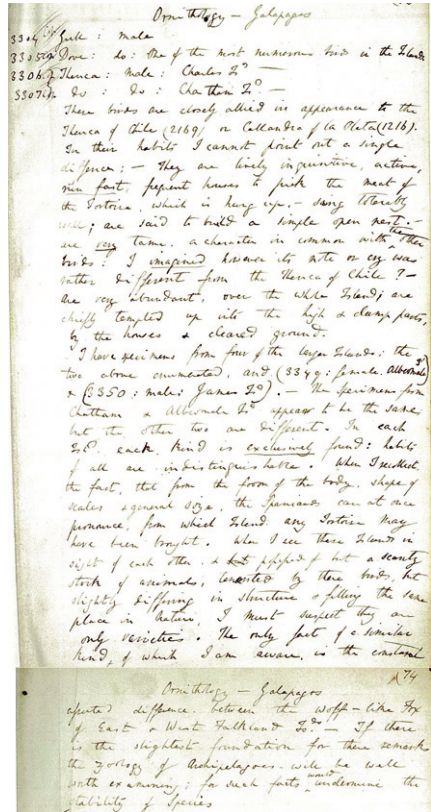 Ornithology — Galapagos
3304 Gull: male
3305 Dove: do: One of the most numerous birds in the Islands
3306 Thenca: male: Charles Isd.
3307 do: do: Chatham Isd. —
These birds are closely allied in appearance to the
Thenca of Chile (2169) or Callandra of la Plata (1216).
In their habits I cannot point out a single
difference; — They are lively inquisitive, active,
run fast, frequent houses to pick the meat of
the Tortoise, which is hung up, — sing tolerably
well; are said to build a simple open nest. —
are very tame, a character in common with the other
birds: I imagined however its note or cry was
rather different from the Thenca of Chile? —
are very abundant, over the whole Island; are
chiefly tempted up into the high & damp parts,
by the houses & cleared ground.
I have specimens from four of the larger Islands; the
two above enumerated, and (3349: female. Albemale
& (3350: male: James Isd). — The specimens from
Chatham & Albermale Isd appear to be the same;
but the other two are different. In each
Isd. each kind is exclusively found: habits
of all are indistinguishable. When I recollect,
the fact, that from the form of the body, shape of
scales & general size, the Spaniards can at once
pronounce, from which Island any Tortoise may
have been brought. When I see these Islands in
sight of each other, & but possessed of but a scanty
stock of animals, tenanted by these birds, but
slightly differing in structure & filling the same
place in Nature, I must suspect they are
only varieties. The only fact of a similar
kind of which I am aware, is the constant
74
Ornithology — Galapagos
asserted difference between the wolf-like Fox
of East & West Falkland Isds. — If there
is the slightest foundation for these remarks
the zoology of Archipelagoes will be well
worth examining; for such facts would undermine the
stability of Species